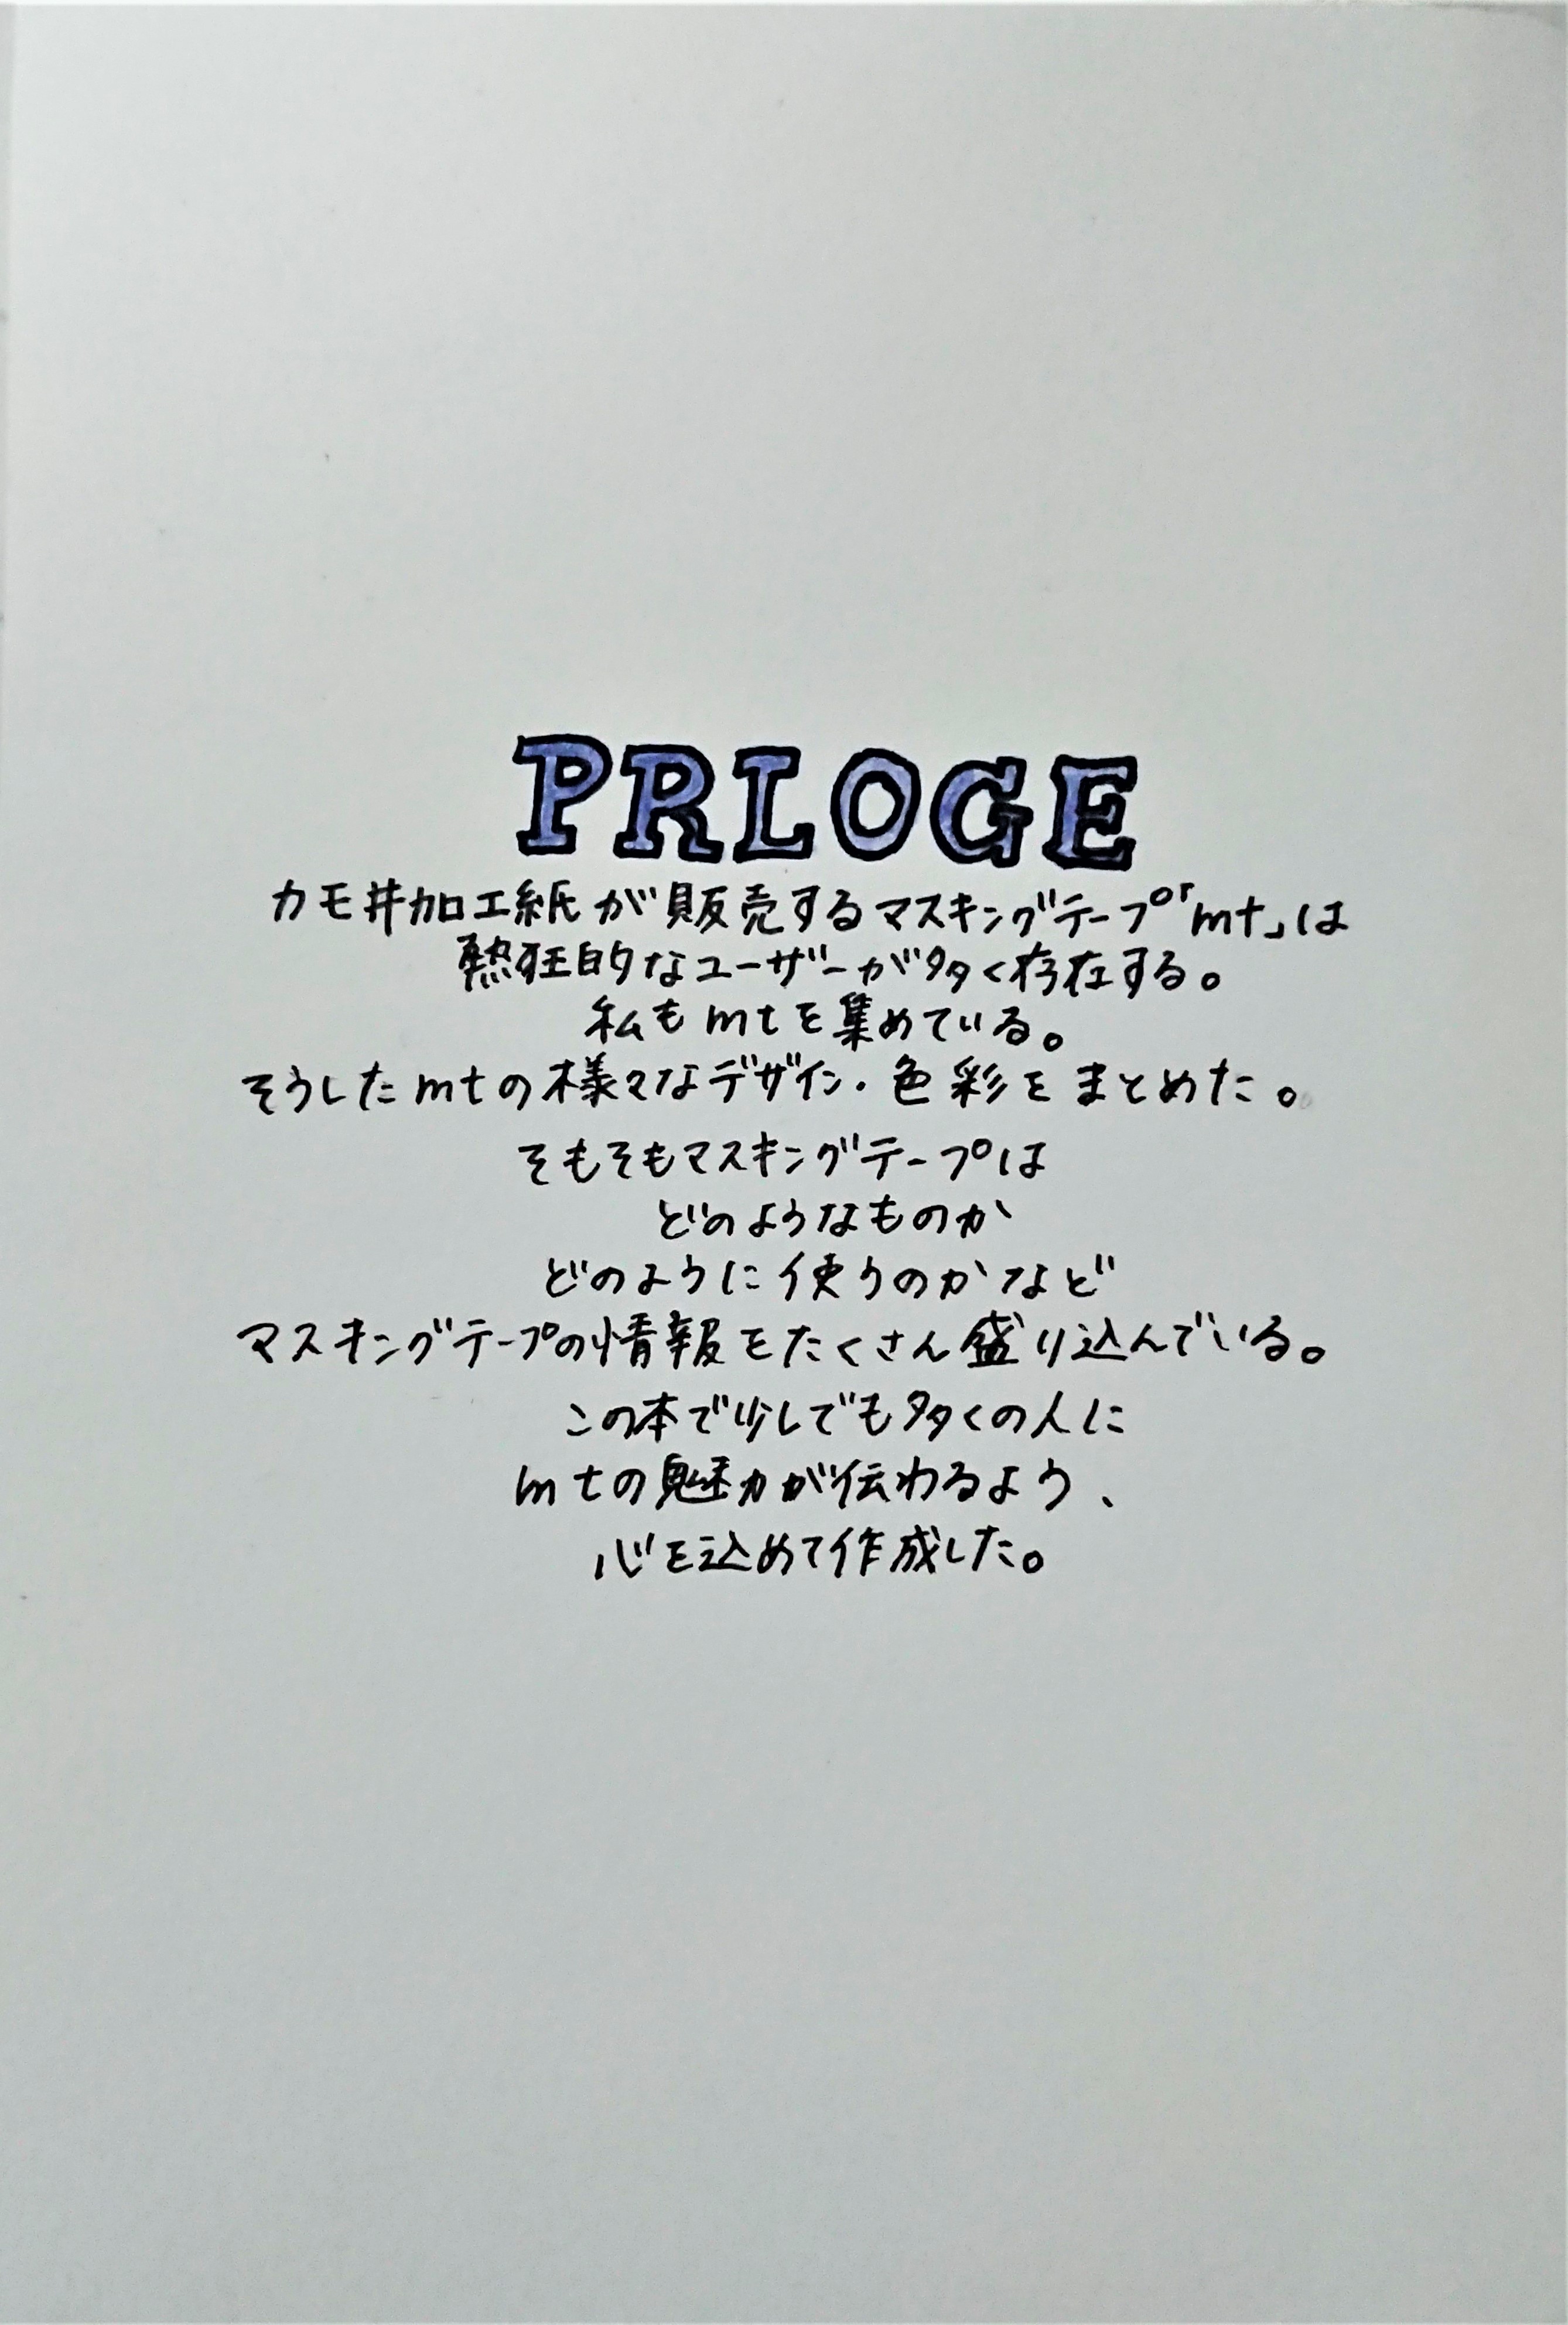 PRLOGE
カモ井加工紙が販売するマスキングテープ「mt」は
熱狂的なユーザーが多く存在する。
私もmtを集めている。
そうしたmtの様々なデザイン・色彩をまとめた。
そもそもマスキングテープは
どのようなものか
どのように使うのかなど
マスキングテープの情報をたくさん盛り込んでいる。
この本で少しでも多くの人に
mtの魅力が伝わるよう、
心を込めて作成した。